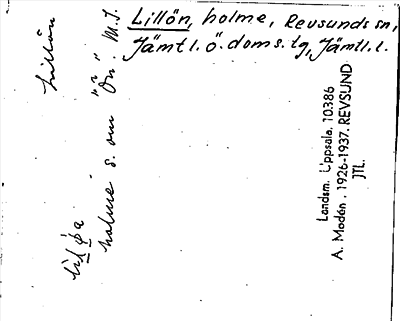 Lillön, holme, Revsunds sn,
Jämtl. ö. doms. tg, Jämtl. l.
Lillön
holme s. om "Ön" M.I.
Landsm. Uppsala. 10386
A. Modén. 1926-1937. REVSUND
JTL.